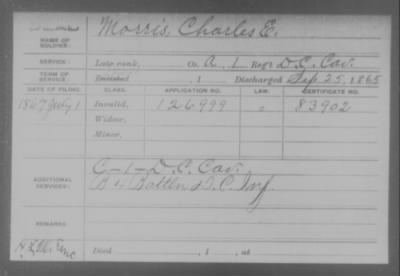 NAME OF SOLDIER: Morris, Charles E.
SERVICE: Late rank, Co. A, 1 Reg't D.C. Cav.
TERM OF SERVICE: Enlisted , 1 Discharged Sep 25, 1865
DATE OF FILING. CLASS. APPLICATION NO. LAW. CERTIFICATE NO.
1867 July 1 Invalid, 126999 83902
Widow,
Minor,
C-1-D.C. Cav.
ADDITIONAL SERVICES: Battln D.C. Inf.
REMARKS:
Died , 1 , at